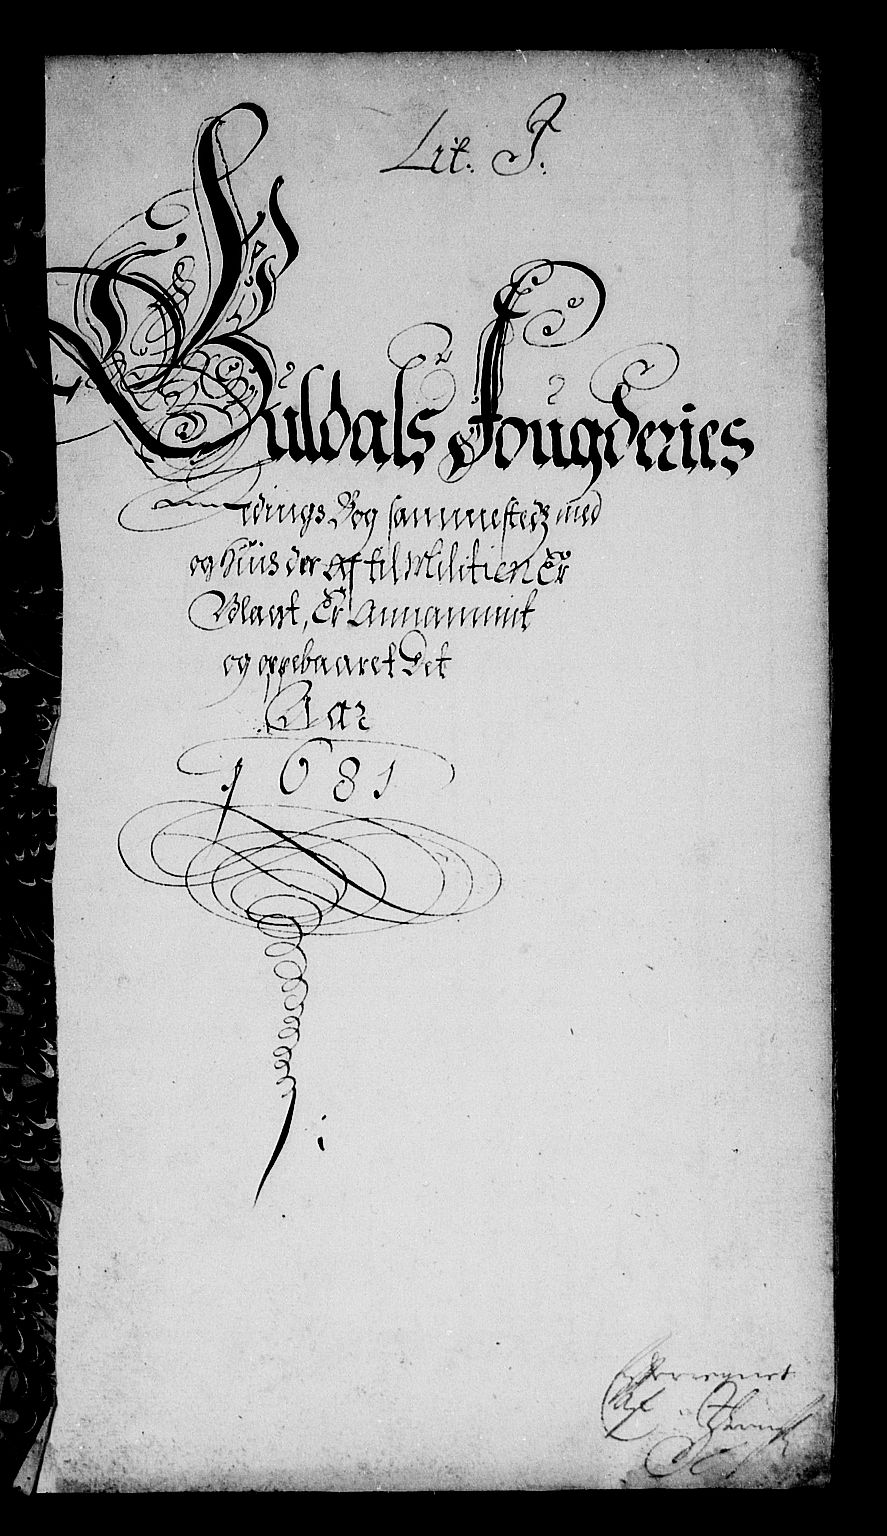 Lit. J.
Guldals Fougderies
Rednings Bog sammestedz med
og huis der Af til Militien Er
Vdlagt, Er Annammit
og oppebaaret Det
Aar
1681
Af